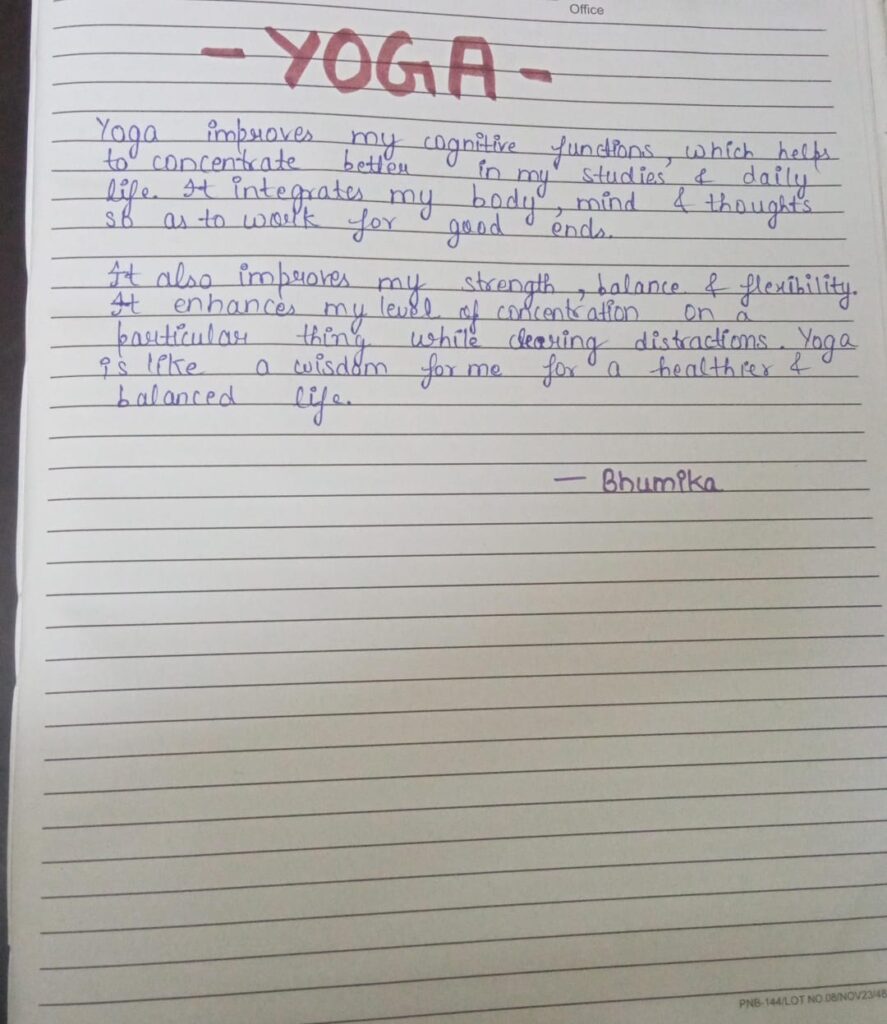 Office
- YOGA -
Yoga improves my cognitive functions, which helps
to concentrate better in my studies & daily
life. It integrates my body, mind & thoughts
so as to work for good ends.
It also improves my strength, balance & flexibility.
It enhances my level of concentration on a
particular thing while clearing distractions. Yoga
is like a wisdom for me for a healthier &
balanced life.
— Bhumika
PNB-144/LOT NO.08/NOV23/48